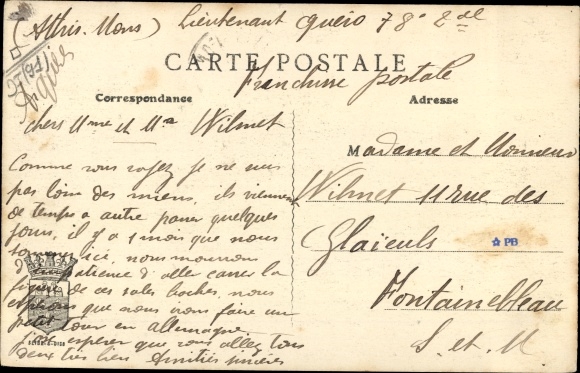 (Athis-Mons) Lieutenant Quéro 78e 2de
CARTE POSTALE
Franchise postale
Correspondance
Adresse
chers Mme et Mr Wilmet
Comme vous voyez, je ne suis
pas loin des miens, ils viennent
de temps a autre passer quelques
jours, il y a 1 mois que nous
sommes ici, nous mourrons
d'impatience d'aller casser la
figure de ces sales boches, nous
espérons que nous irons faire un
petit tour en Allemagne.
J'ose espérer que vous allez tous
deux très bien Amitiés sincères
Madame et Monsieur
Wilmet 11 rue des
Glaïeuls
PB
Fontainebleau
S. et M